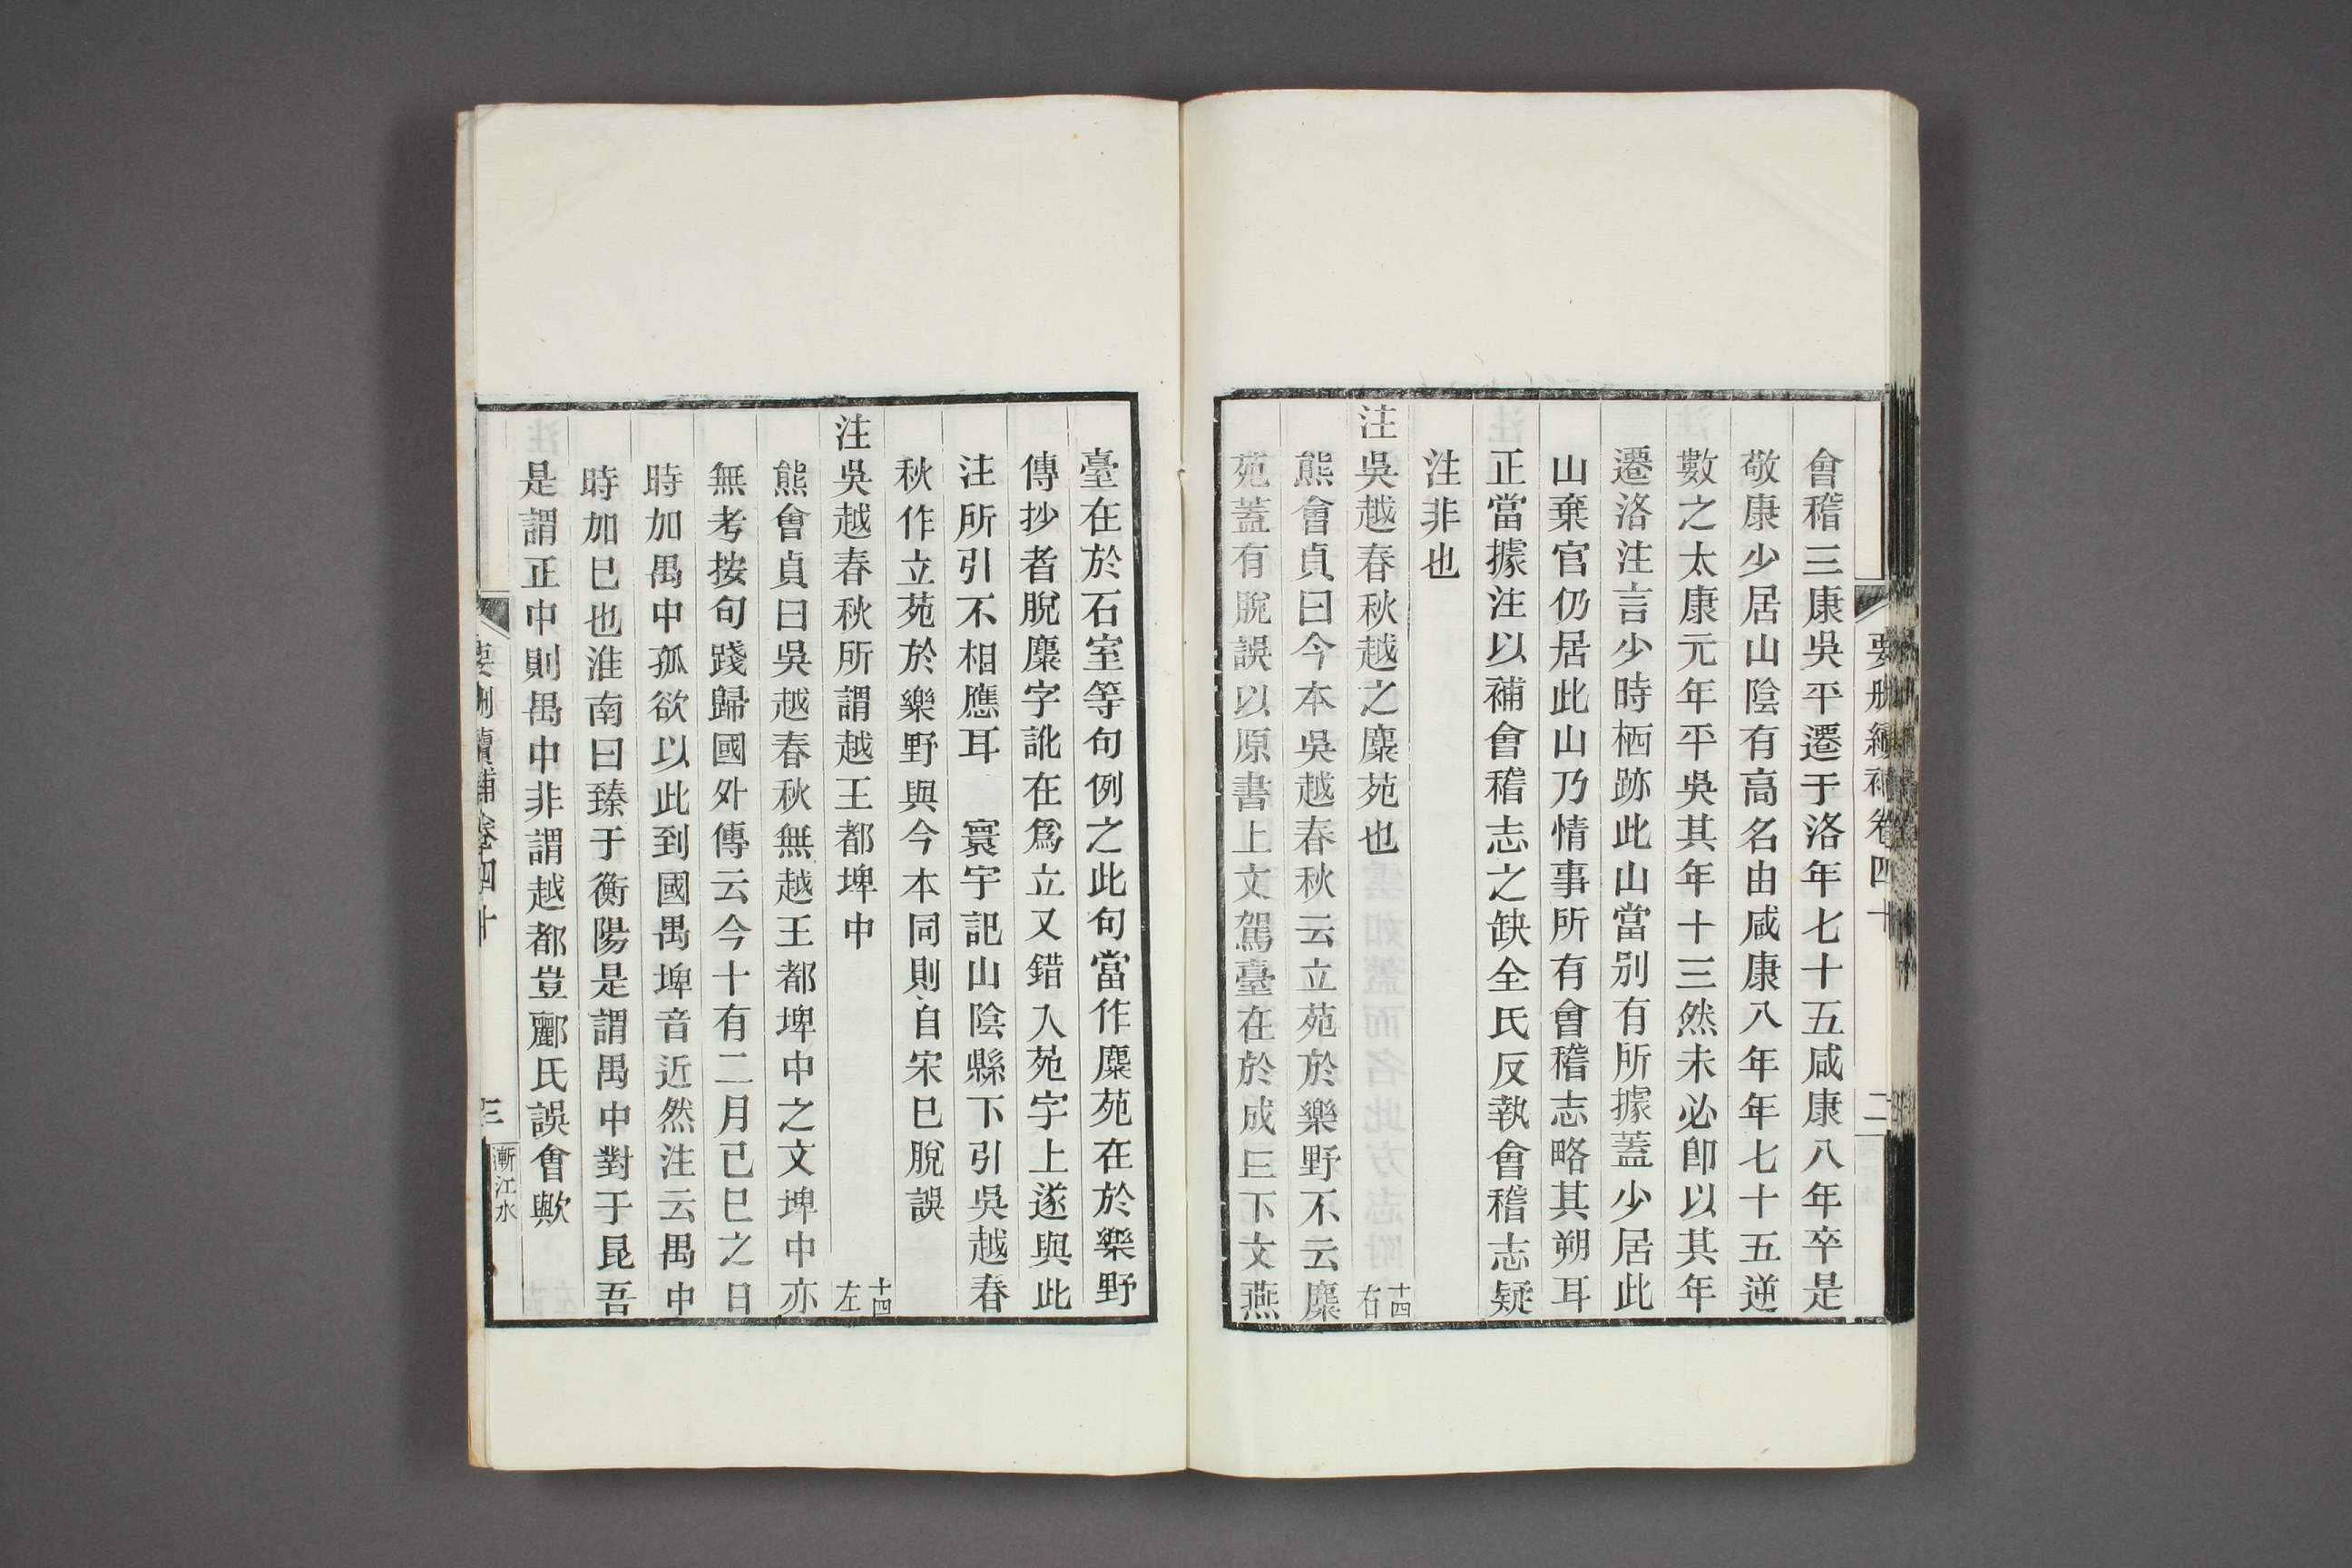 要刪續補卷四十
二
會稽三康吳平遷于洛年七十五咸康八年卒是
敬康少居山陰有高名由咸康八年年七十五逆
數之太康元年平吳其年十三然未必卽以其年
遷洛注言少時栖跡此山當別有所據蓋少居此
山棄官仍居此山乃情事所有會稽志略其朔耳
正當據注以補會稽志之缺全氏反執會稽志疑
注非也
注吳越春秋越之麋苑也 十四右
熊會貞曰今本吳越春秋云立苑於樂野不云麋
苑蓋有脫誤以原書上文駕臺在於成丘下文燕
臺在於石室等句例之此句當作麋苑在於樂野
傳抄者脫麋字訛在爲立又錯入苑字上遂與此
注所引不相應耳　寰宇記山陰縣下引吳越春
秋作立苑於樂野與今本同則自宋已脫誤
注吳越春秋所謂越王都埤中 十四左
熊會貞曰吳越春秋無越王都埤中之文埤中亦
無考按句踐歸國外傳云今十有二月已巳之日
時加禺中孤欲以此到國禺埤音近然注云禺中
時加巳也淮南曰臻于衡陽是謂禺中對于昆吾
是謂正中則禺中非謂越都豈酈氏誤會歟
要刪續補卷四十
三
漸江水